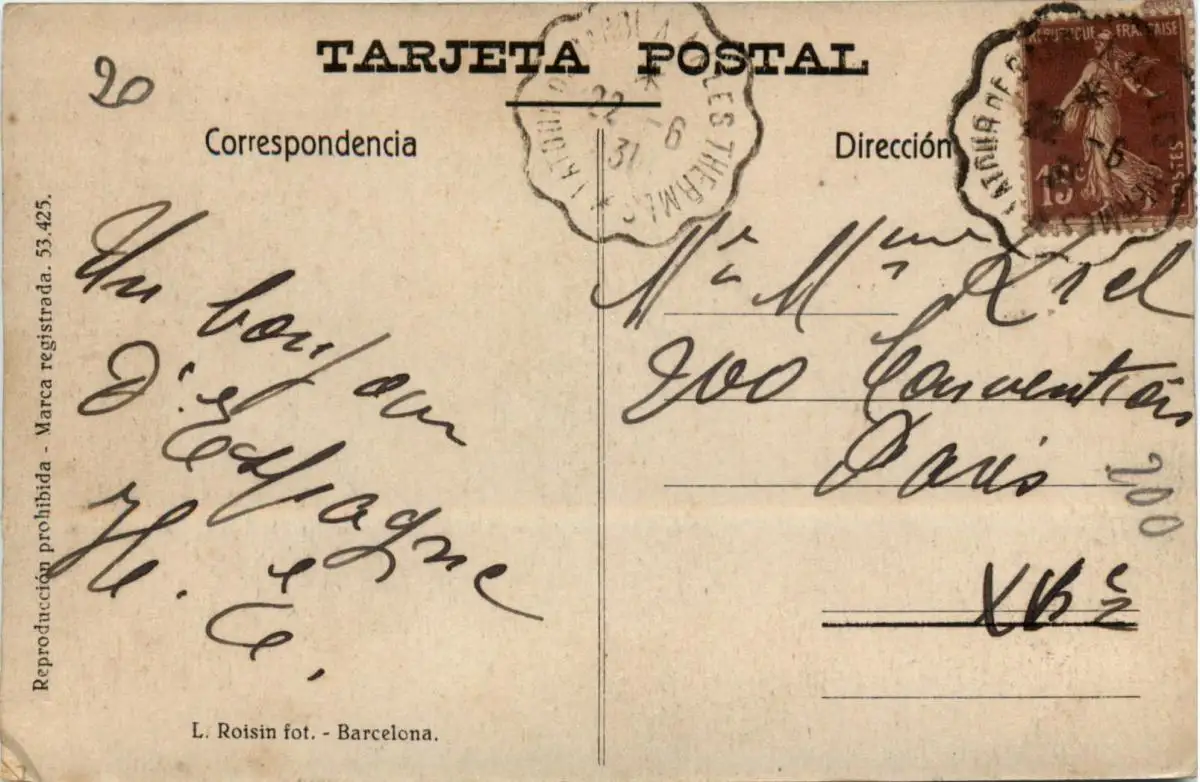 TARJETA POSTAL
20
Correspondencia
Dirección
22 -6
31
RÉPUBLIQUE FRANÇAISE
15c
POSTES
Un bonjour
D'Espagne
H. C.
Mr Mme
200 Convention
Paris
XVe
200
Reproducción prohibida - Marca registrada. 53.425.
L. Roisin fot. - Barcelona.